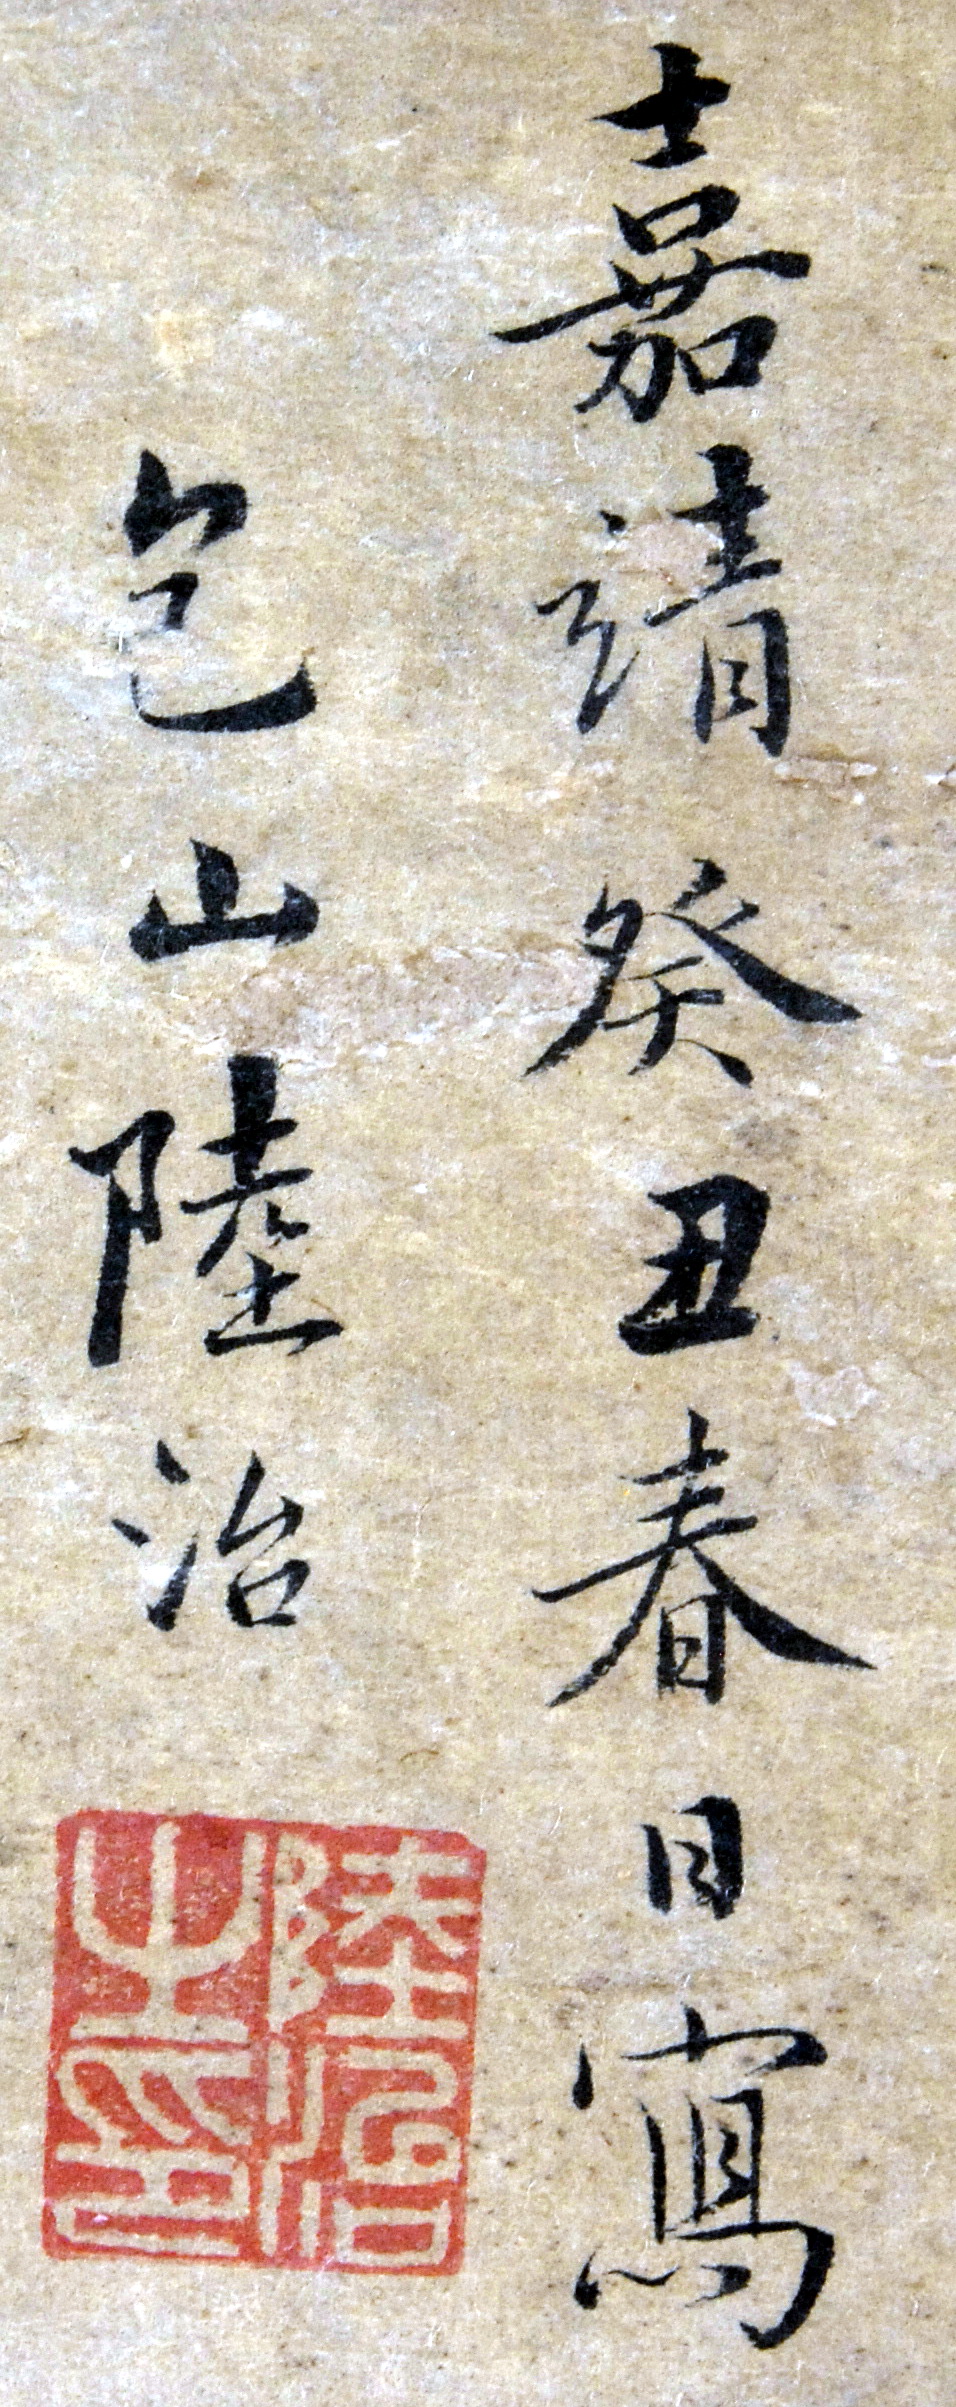 嘉靖癸丑春日寫
包山陸治
陸治
之印